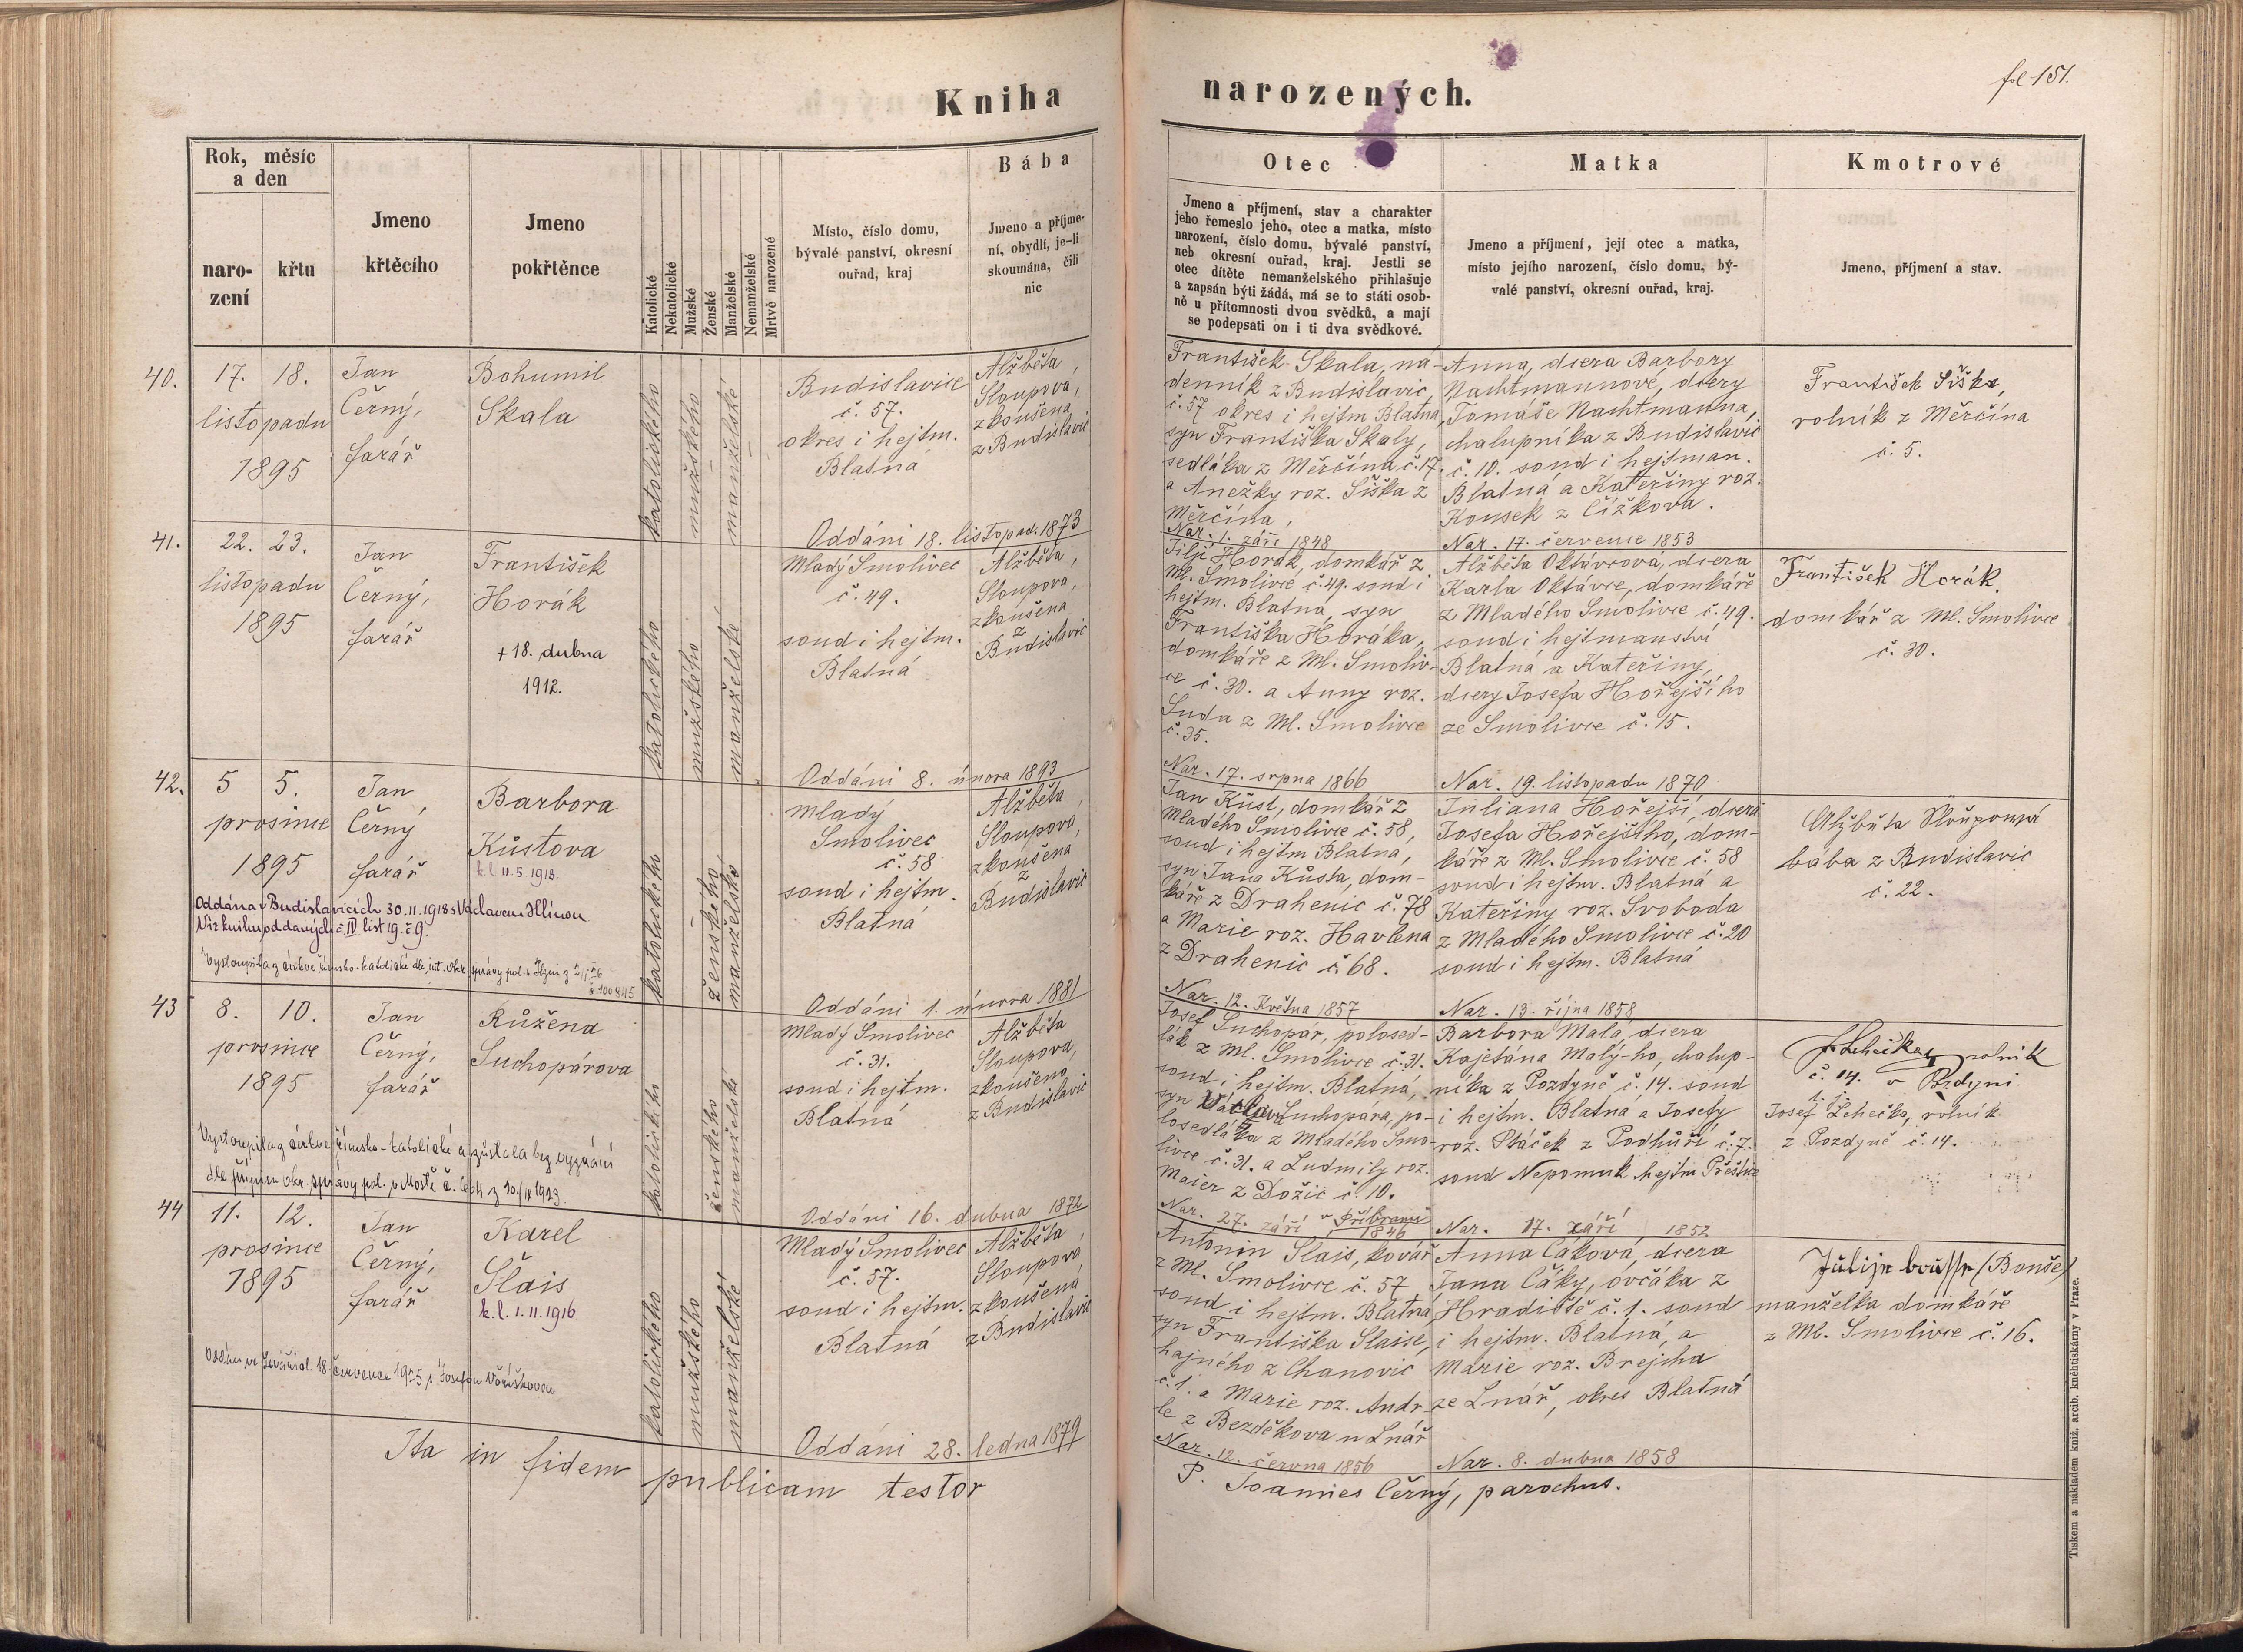 Kniha
narozených.
fol 151.
Rok, měsíc
a den
naro-
zení
křtu
Jmeno
křtěcího
Jmeno
pokřtěnce
Katolické
Nekatolické
Mužské
Ženské
Manželské
Nemanželské
Mrtvě narozené
Místo, číslo domu,
bývalé panství, okresní
ouřad, kraj
Bába
Jmeno a příjme-
ní, obydlí, je-li
skoumána, čili
nic
Otec
Jmeno a příjmení, stav a charakter
jeho řemeslo jeho, otec a matka, místo
narození, číslo domu, bývalé panství,
neb okresní ouřad, kraj. Jestli se
otec dítěte nemanželského přihlašuje
a zapsán býti žádá, má se to státi osob-
ně u přítomnosti dvou svědků, a mají
se podepsati on i ti dva svědkové.
Matka
Jmeno a příjmení, její otec a matka,
místo jejího narození, číslo domu, bý-
valé panství, okresní ouřad, kraj.
Kmotrové
Jmeno, příjmení a stav.
40.
17. 18.
listopadu
1895
Jan
Černý,
farář
Bohumil
Skala
katolického
mužského
manželské
Budislavice
č. 57.
okres i hejtm.
Blatná
Alžběta
Sloupova,
zkoušena
z Budislavic
Oddáni 18. listopad. 1873
František Skala, ná-
denník z Budislavic,
č. 57 okres i hejtm Blatna,
syn Františka Skaly,
sedláka z Měrčína č. 17.
a Anežky roz. Šiška z
Měrčína,
Nar. 1. září 1848
Anna, dcera Barbory
Nachtmannové, dcery
Tomáše Nachtmanna,
chalupníka z Budislavic
č. 10. soud i hejtman.
Blatná a Kateřiny roz.
Kousek z Čížkova.
Nar. 17. července 1853
František Šiška,
rolník z Měrčína
č. 5.
41.
22. 23.
listopadu
1895
Jan
Černý,
farář
František
Horák
+ 18. dubna
1912.
katolického
mužského
manželské
Mladý Smolivec
č. 49.
soud i hejtm.
Blatná
Alžběta,
Sloupova,
zkoušena
z
Budislavic
Oddáni 8. února 1893
Jiljí Horák, domkář z
Ml. Smolivce č. 49. soud i
hejtm. Blatná, syn
Františka Horáka,
domkáře z Ml. Smoliv-
ce č. 30. a Anny roz.
Suda z Ml. Smolivce
č. 35.
Nar. 17. srpna 1866
Alžběta Oktávcová, dcera
Karla Oktávce, domkáře
z Mladého Smolivce č. 49.
soud i hejtmanství
Blatná a Kateřiny,
dcery Josefa Hořejšího
ze Smolivce č. 15.
Nar. 19. listopadu 1870
František Horák,
domkář z Ml. Smolivce
č. 30.
42.
5 5.
prosince
1895
Jan
Černý
farář
Barbora
Kůstova
k.l. 11.5.1913.
Oddána v Budislavicích 30.11.1918 s Václavem Hlinou
Viz knihu oddaných č IV list 19. č 9.
Vystoupila z církve římsko-katolické dle
č. 100845
katolického
ženského
manželské
Mladý
Smolivec
č. 58
soud i hejtm.
Blatná
Alžběta
Sloupova,
zkoušena
z
Budislavic
Oddáni 1. února 1881
Jan Kůst, domkář z
Mladého Smolivce č. 58,
soud i hejtm Blatná,
syn Jana Kůsta, dom-
káře z Drahenic č. 78
a Marie roz. Havlena
z Drahenic č. 68.
Nar. 12. Května 1857
Juliana Hořejší, dcera
Josefa Hořejšího, dom-
káře z Ml. Smolivce č. 58
soud i hejtm. Blatná a
Kateřiny roz. Svoboda
z Mladého Smolivce č. 20
soud i hejtm. Blatná
Nar. 13. října 1858
Alžběta Sloupová
bába z Budislavic
č. 22.
43
8. 10.
prosince
1895
Jan
Černý,
farář
Růžena
Suchopárova
Vystoupila z církve římsko-katolické a zůstala bez vyznání
dle přípisu okr. správy pol. v Mostě č. z 1923
katolického
ženského
manželské
Mladý Smolivec
č. 31.
soud i hejtm.
Blatná
Alžběta
Sloupova,
zkoušena
z Budislavic
Oddáni 16. dubna 1872
Josef Suchopár, polosed-
lák z Ml. Smolivce č. 31.
soud i hejtm. Blatná,
syn Václava Suchopára, po-
losedláka z Mladého Smo-
livce č. 31. a Ludmily roz.
Maier z Dožic č. 10.
Nar. 27. září v Příbrami 1846
Barbora Malá, dcera
Kajetána Malý-ho, chalup-
níka z Pozdyně č. 14. soud
i hejtm. Blatná a Josefy
roz. Ptáček z Podhůří č. 7.
soud Nepomuk hejtm Přeštice
Nar. 17. září 1852
J. Lehečka rolník
č. 14. v Pozdyni.
t. j.
Josef Lehečka, rolník
z Pozdyně č. 14.
44
11. 12.
prosince
1895
Jan
Černý,
farář
Karel
Šlais
k.l. 1.11.1916
18. července 1925 s
katolického
mužského
manželské
Mladý Smolivec
č. 57.
soud i hejtm.
Blatná
Alžběta
Sloupová
zkoušená
z Budislavic
Oddáni 28. ledna 1879
Antonín Šlais, kovář
z Ml. Smolivce č. 57
soud i hejtm. Blatná,
syn Františka Šlaise,
hajného z Chanovic
č. 1. a Marie roz. Andr-
le z Bezděkova u Lnář
Nar. 12. června 1856
Anna Čáková, dcera
Jana Čáky, ovčáka z
Hradiště č. 1. soud
i hejtm. Blatná, a
Marie roz. Brejcha
ze Lnář, okres Blatná
Nar. 8. dubna 1858
(Bouše)
manželka domkáře
z Ml. Smolivce č. 16.
Ita in fidem publicam testor
P. Joannes Černý, parochus.
Tiskem a nákladem kníž. arcib. kněhtiskárny v Praze.